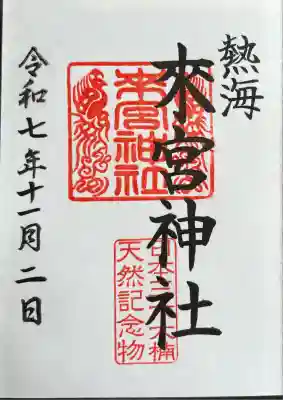 熱海
來宮神社
令和七年十一月二日
來宮神社
天然記念物